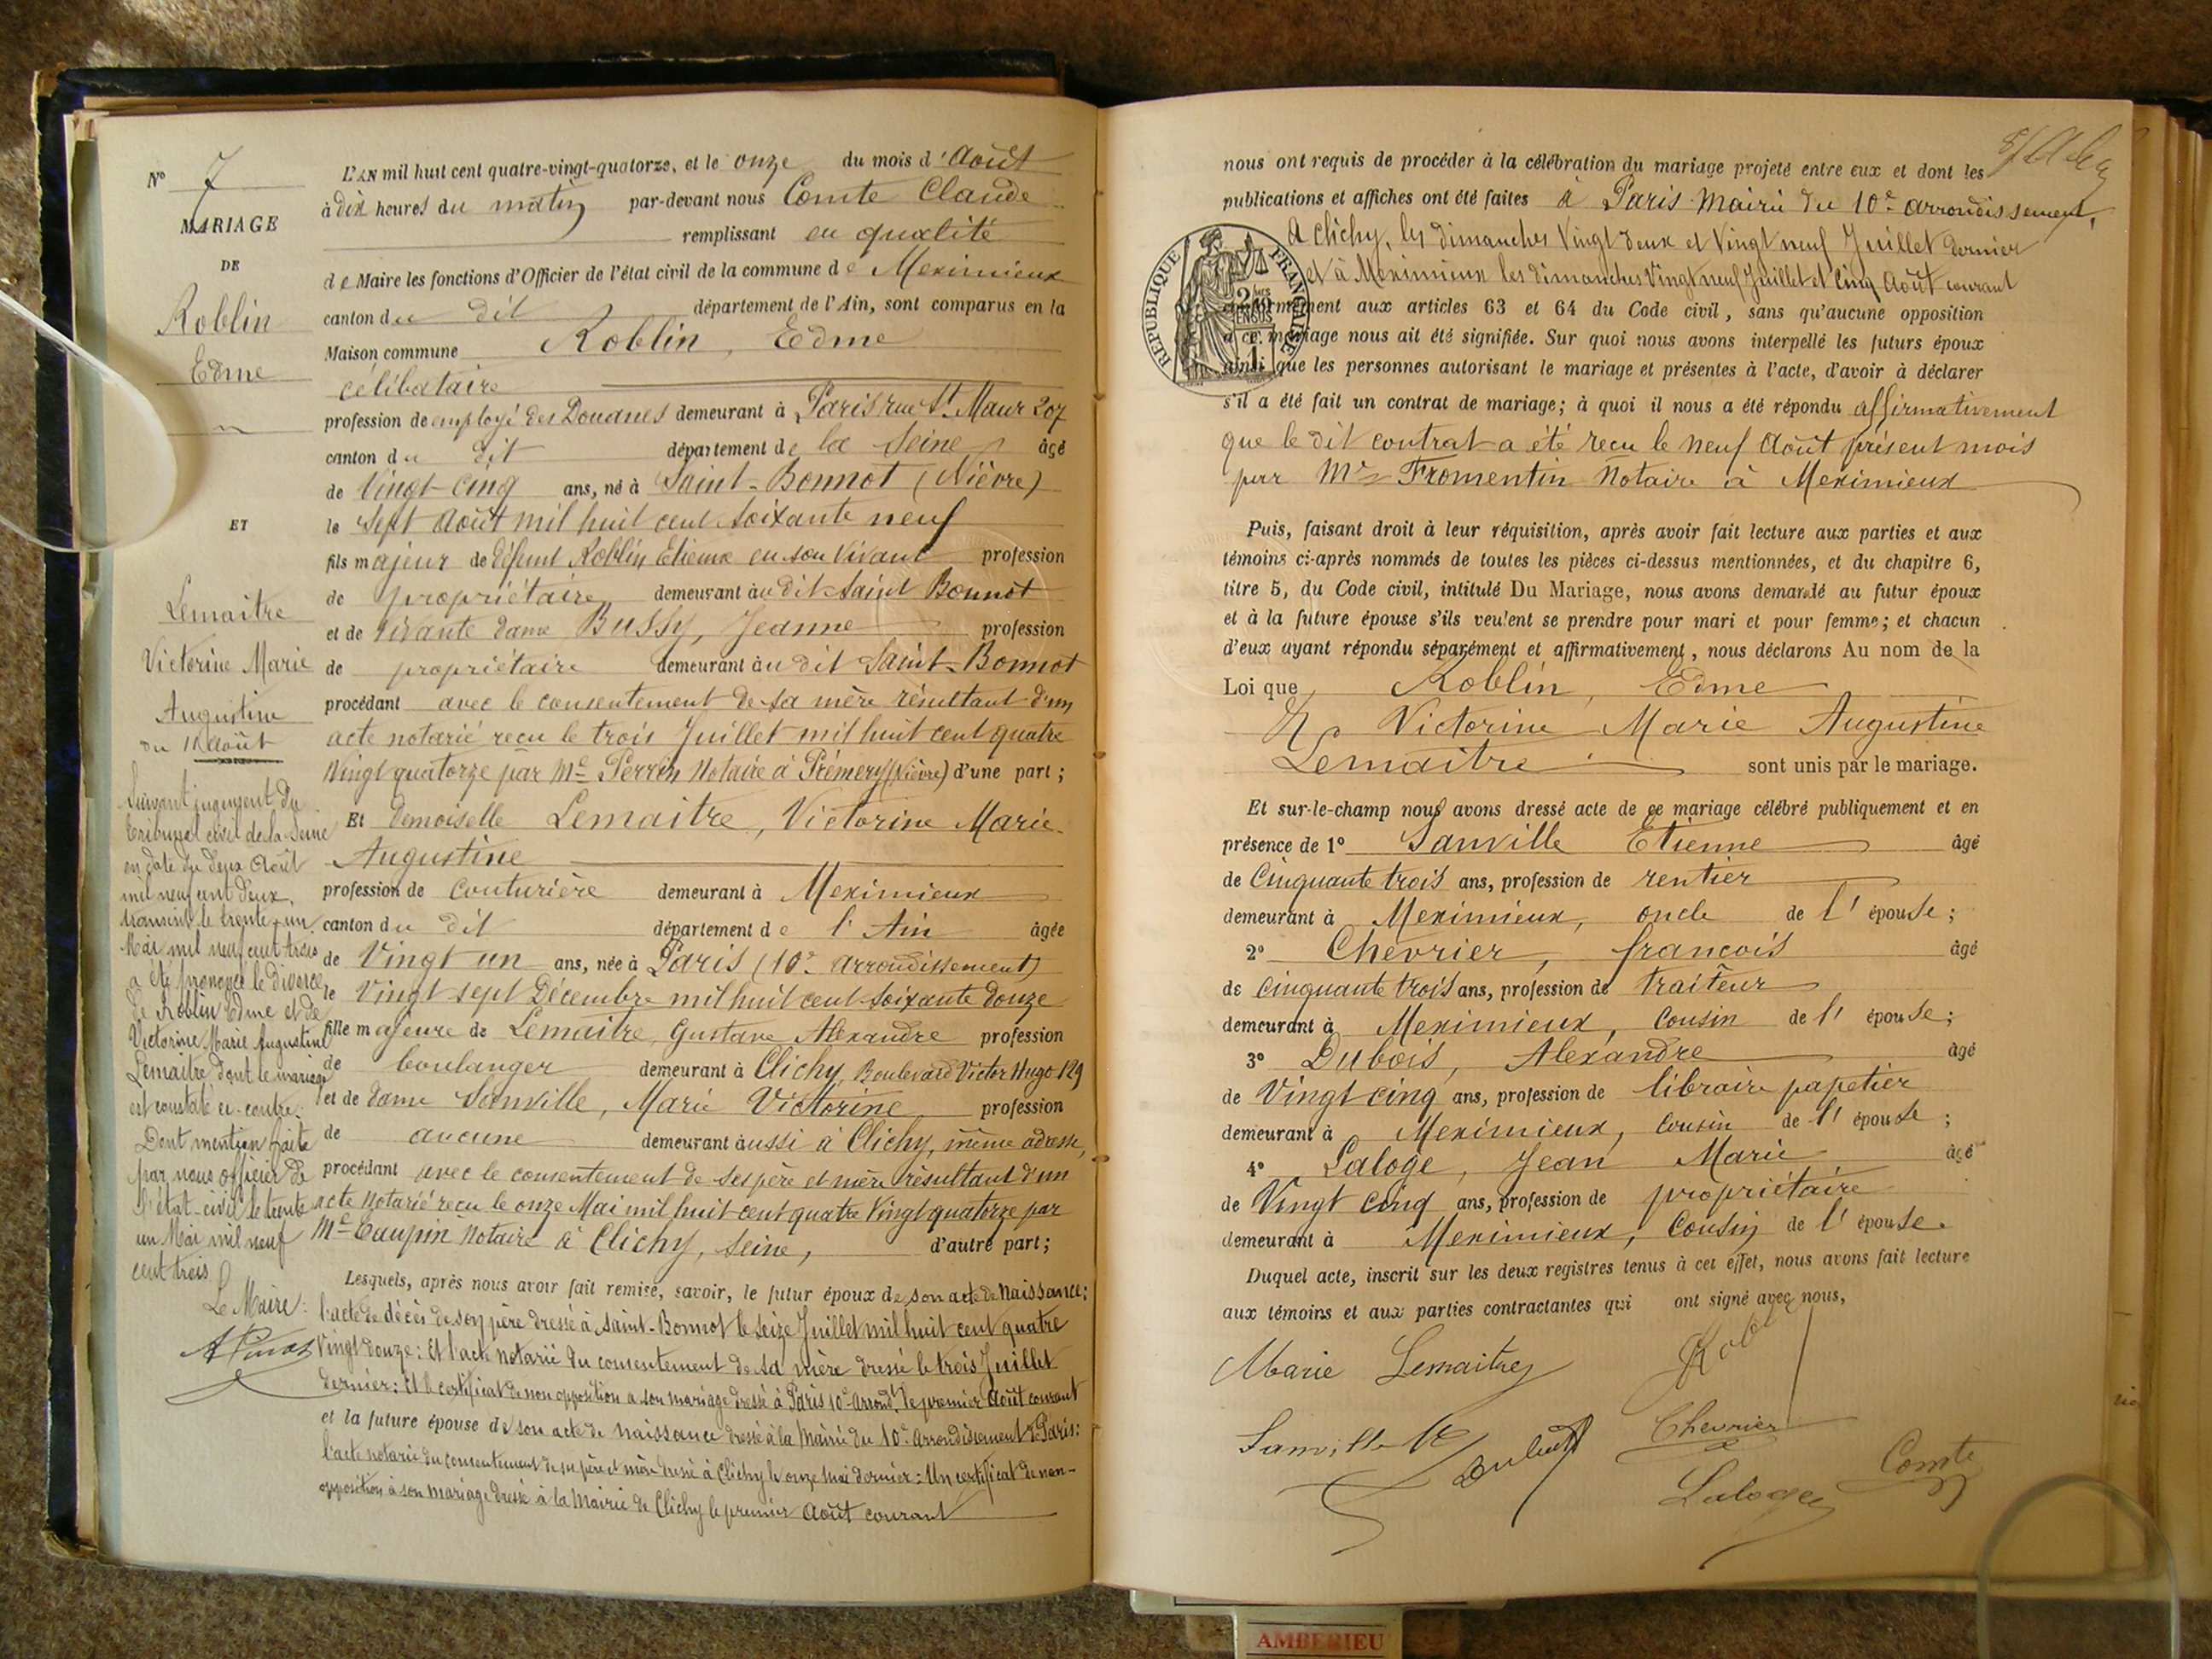 N° 7
MARIAGE
DE
Roblin
Edme
ET
Lemaitre
Victorine Marie
Augustine
Du 11 Août
Suivant jugement du
tribunal civil de la Seine
en date du deux Août
mil neuf cent deux,
transcrit le trente-un
Mai mil neuf cent trois
a été prononcé le divorce
de Roblin Edme et de
Victorine Marie Augustine
Lemaitre dont le mariage
est constaté ci-contre.
Dont mention faite
par nous officier de
l'état-civil le trente
un Mai mil neuf
cent trois
Le Maire:
L'AN mil huit cent quatre-vingt-quatorze, et le onze du mois d'Août
à dix heures du matin par-devant nous Comte Claude
remplissant en qualité
de Maire les fonctions d'Officier de l'état civil de la commune de Meximieux
canton du dit département de l'Ain, sont comparus en la
Maison commune Roblin, Edme
célibataire
profession de employé des Douanes demeurant à Paris rue St Maur 207
canton du dit département de la Seine âgé
de Vingt-cinq ans, né à Saint-Bonnot (Nièvre)
le Sept Août mil huit cent soixante neuf
fils majeur de défunt Roblin Etienne en son vivant profession
de propriétaire demeurant au dit Saint Bonnot
et de vivante dame Bussy, Jeanne profession
de propriétaire demeurant au dit Saint-Bonnot
procédant avec le consentement de sa mère résultant d'un
acte notarié reçu le trois Juillet mil huit cent quatre
Vingt quatorze par Me Perrin Notaire à Prémery (Nièvre) d'une part;
Et demoiselle Lemaitre, Victorine Marie
Augustine
profession de couturière demeurant à Meximieux
canton du dit département de l'Ain âgée
de Vingt un ans, née à Paris (10e arrondissement)
le Vingt sept Décembre mil huit cent soixante douze
fille majeure de Lemaitre, Gustave Alexandre profession
de boulanger demeurant à Clichy, Boulevard Victor Hugo 129
et de dame Sanville, Marie Victorine profession
de aucune demeurant aussi à Clichy, même adresse,
procédant avec le consentement de ses père et mère résultant d'un
acte Notarié reçu le onze Mai mil huit cent quatre Vingt quatorze par
Me Notaire à Clichy, Seine, d'autre part;
Lesquels, après nous avoir fait remise, savoir, le futur époux de son acte de Naissance;
l'acte de décès de son père dressé à Saint-Bonnot le seize Juillet mil huit cent quatre
Vingt douze: Et l'acte notarié du consentement de sa mère dressé le trois Juillet
dernier: Et le certificat de non opposition a son mariage dressé à Paris 10e arrondt le premier Août courant
et la future épouse de son acte de naissance dressé à la Mairie du 10e Arrondissement de Paris:
l'acte notarié du consentement de ses père et mère dressé à Clichy le onze Mai dernier: Un certificat de non-
opposition à son mariage dressé à la Mairie de Clichy le premier Août courant
nous ont requis de procéder à la célébration du mariage projeté entre eux et dont les
publications et affiches ont été faites à Paris Mairie du 10e arrondissement,
A Clichy, les dimanches Vingt deux et Vingt neuf Juillet dernier
et à Meximieux les dimanches Vingt neuf Juillet et Cinq Août courant
conformément aux articles 63 et 64 du Code civil, sans qu'aucune opposition
à ce mariage nous ait été signifiée. Sur quoi nous avons interpellé les futurs époux
ainsi que les personnes autorisant le mariage et présentes à l'acte, d'avoir à déclarer
s'il a été fait un contrat de mariage; à quoi il nous a été répondu affirmativement
que le dit contrat a été reçu le neuf Août présent mois
par Me Fromentin Notaire à Meximieux
RÉPUBLIQUE FRANÇAISE
Puis, faisant droit à leur réquisition, après avoir fait lecture aux parties et aux
témoins ci-après nommés de toutes les pièces ci-dessus mentionnées, et du chapitre 6,
titre 5, du Code civil, intitulé Du Mariage, nous avons demandé au futur époux
et à la future épouse s'ils veulent se prendre pour mari et pour femme; et chacun
d'eux ayant répondu séparément et affirmativement, nous déclarons Au nom de la
Loi que Roblin, Edme
Et Victorine Marie Augustine
Lemaitre sont unis par le mariage.
Et sur-le-champ nous avons dressé acte de ce mariage célébré publiquement et en
présence de 1° Sanville Etienne âgé
de Cinquante trois ans, profession de rentier
demeurant à Meximieux, oncle de l'épouse;
2° Chevrier, françois âgé
de cinquante trois ans, profession de traiteur
demeurant à Meximieux, Cousin de l'épouse;
3° Dubois, Alexandre âgé
de Vingt cinq ans, profession de libraire papetier
demeurant à Meximieux, Cousin de l'épouse;
4° Laloge, Jean Marie âgé
de Vingt cinq ans, profession de propriétaire
demeurant à Meximieux, Cousin de l'épouse.
Duquel acte, inscrit sur les deux registres tenus à cet effet, nous avons fait lecture
aux témoins et aux parties contractantes qui ont signé avec nous,
Marie Lemaitre
Sanville
Chevrier
Laloge
Comte
AMBERIEU